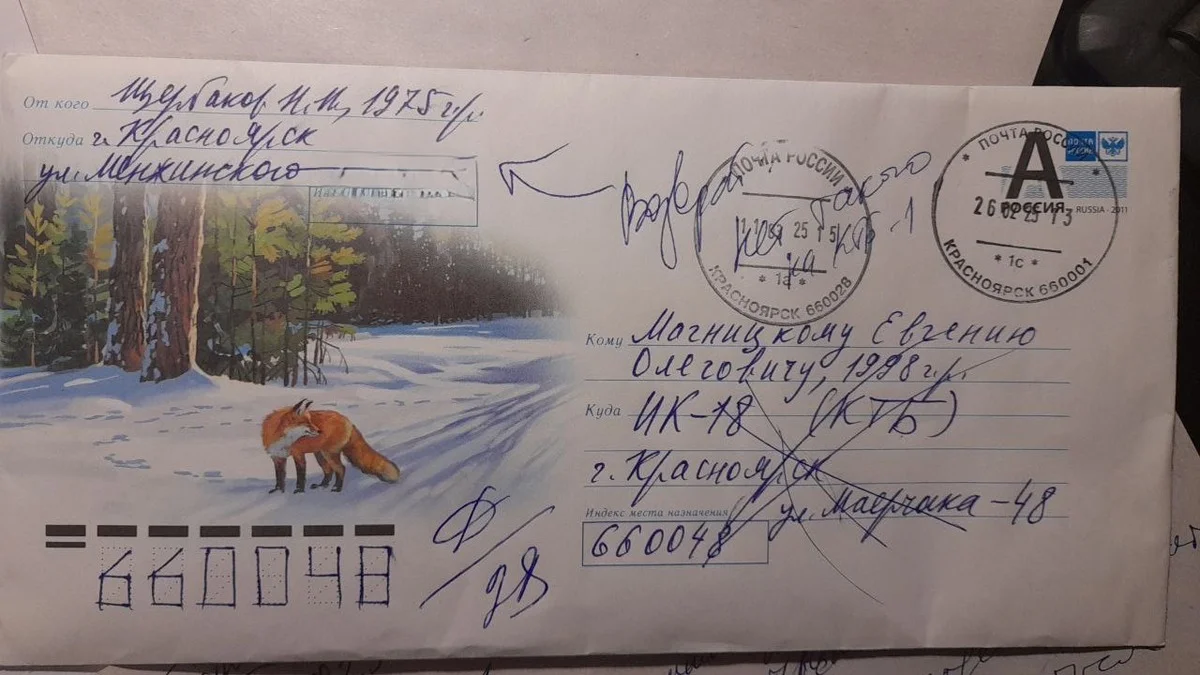 От кого Щербаков Н.Н, 1975 г.р.
Откуда г. Красноярск
ул. Менжинского
Возврат
нет такого
на КТБ-1
ПОЧТА РОССИИ
25 15
* 1а *
КРАСНОЯРСК 660028
ПОЧТА РОССИИ
А
РОССИЯ
RUSSIA - 2011
26 02 25 13
* 1с *
КРАСНОЯРСК 660001
Кому Магницкому Евгению
Олеговичу, 1998 г.р.
Куда ИК-18 (КТБ)
г. Красноярск
Индекс места назначения ул. Маерчака-48
660048
660048
Ф/